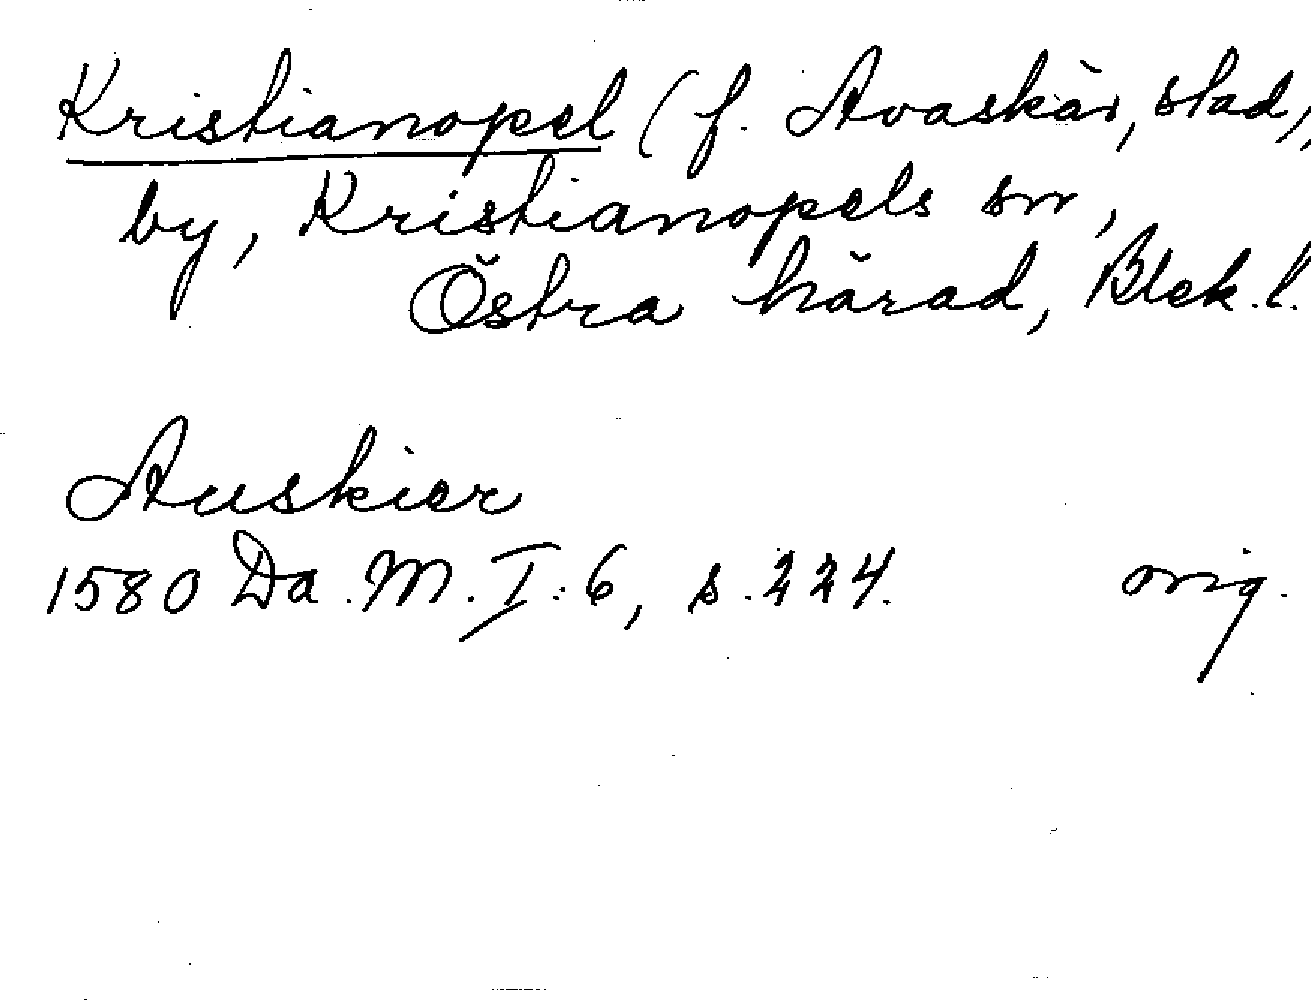 Kristianopel (f. Avaskär, stad),
by, Kristianopels sn,
Östra härad, Blek. l.
Auskier
1580 Da. M. I: 6, s. 224. orig.